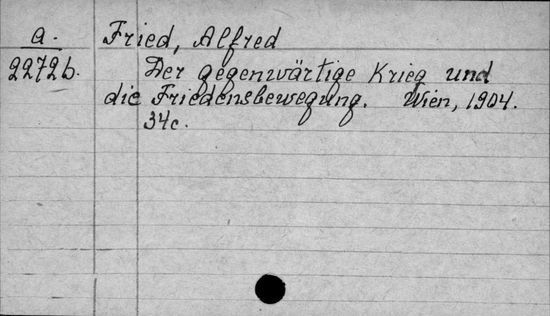 a.
2272b.
Fried, Alfred
Der gegenwärtige Krieg und
die Friedensbewegung. Wien, 1904.
34c.